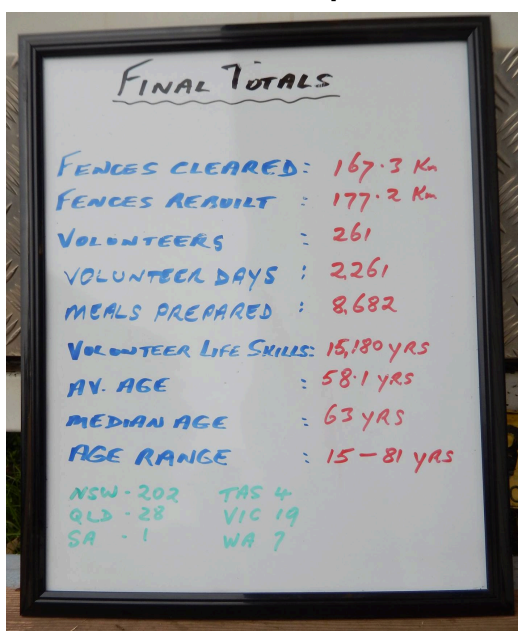 FINAL TOTALS
FENCES CLEARED: 167.3 Km
FENCES REBUILT : 177.2 Km
VOLUNTEERS : 261
VOLUNTEER DAYS : 2,261
MEALS PREPARED : 8,682
VOLUNTEER LIFE SKILLS: 15,180 YRS
AV. AGE : 58.1 YRS
MEDIAN AGE : 63 YRS
AGE RANGE : 15 - 81 YRS
NSW - 202 TAS 4
QLD - 28 VIC 19
SA - 1 WA 7